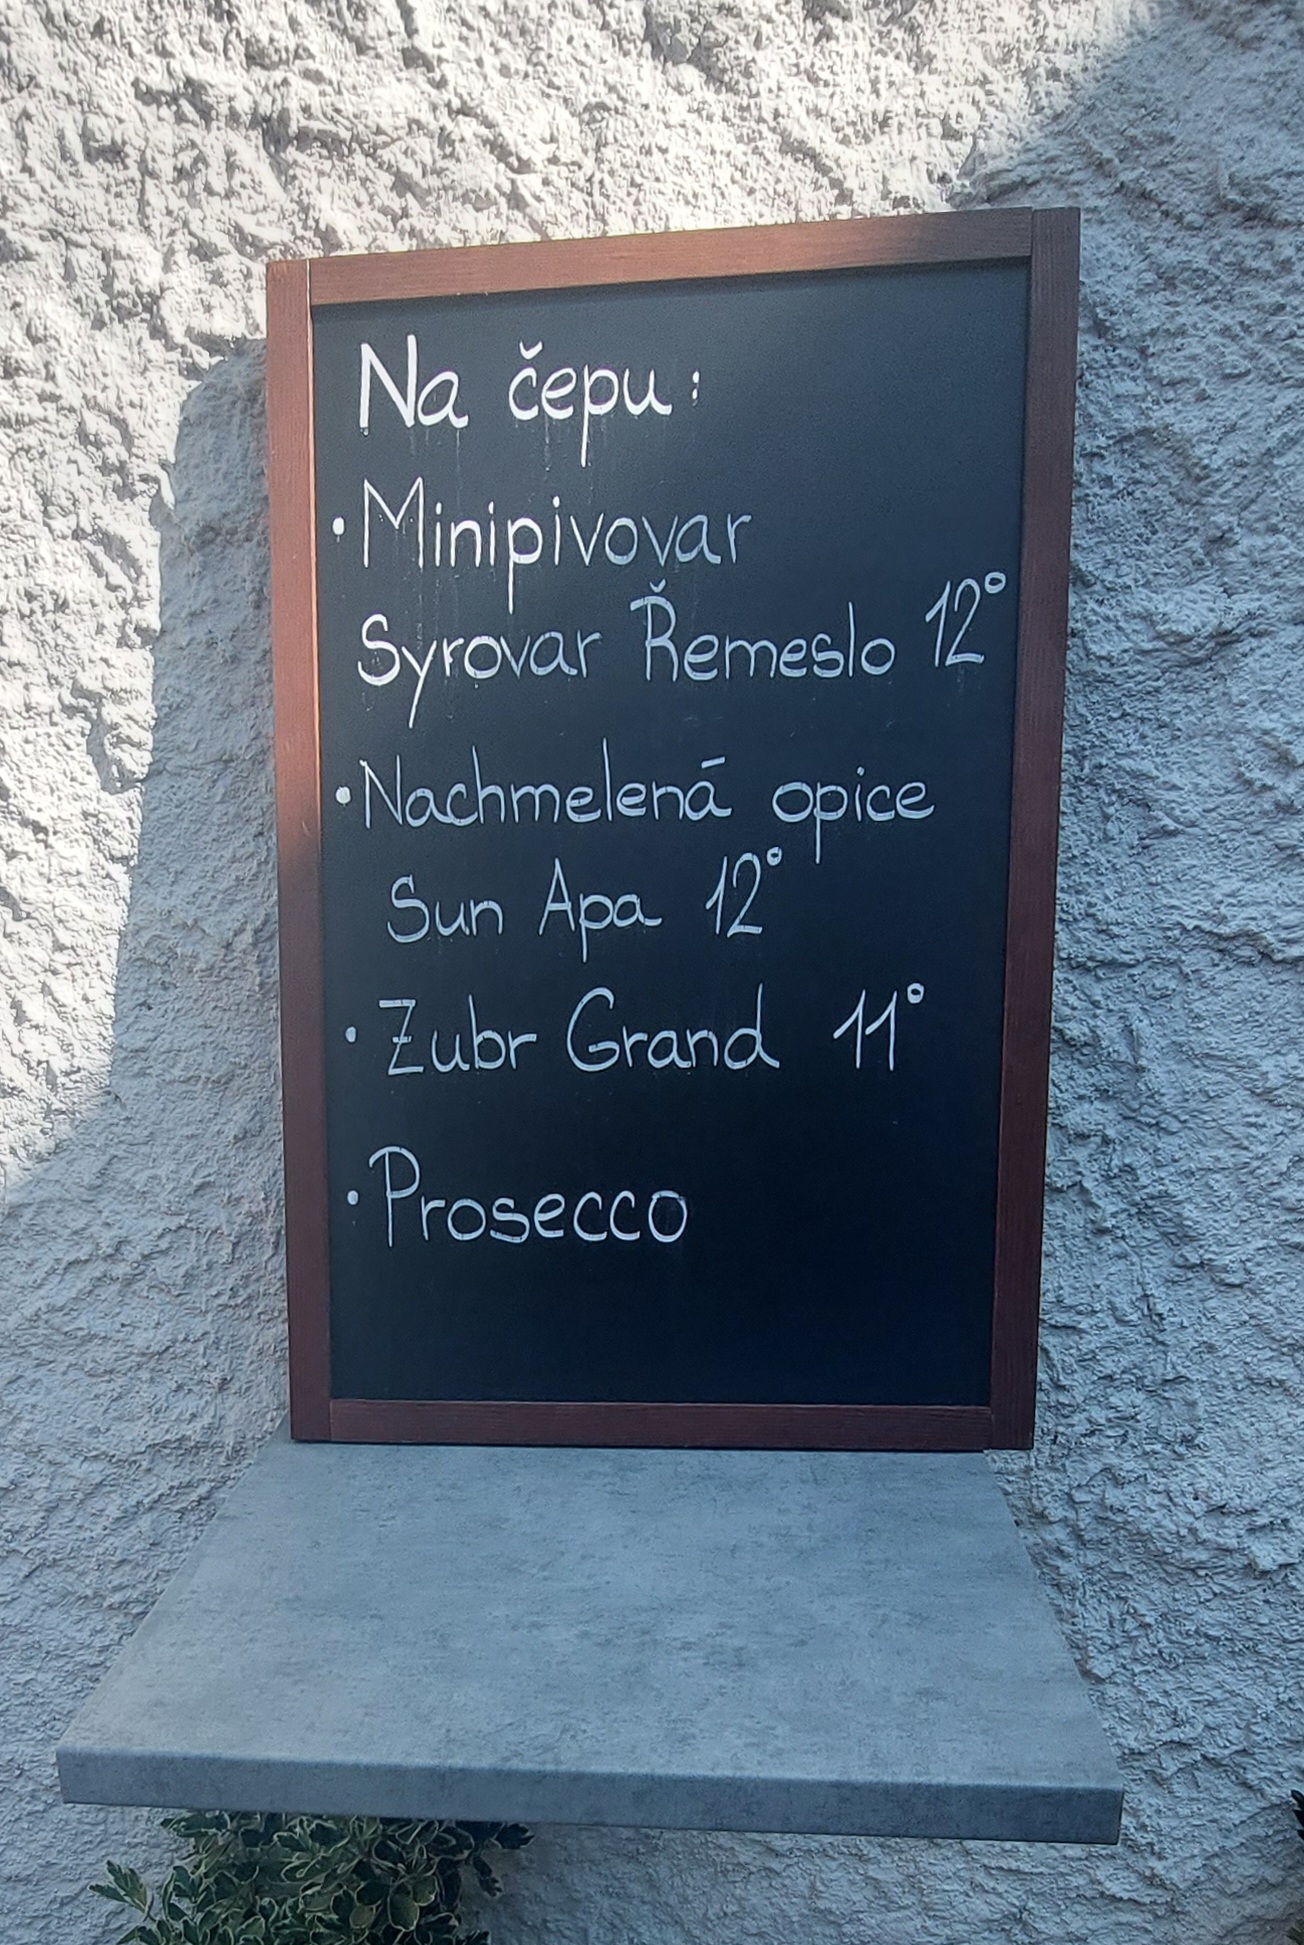 Na čepu:
• Minipivovar
Syrovar Řemeslo 12°
• Nachmelená opice
Sun Apa 12°
• Zubr Grand 11°
• Prosecco